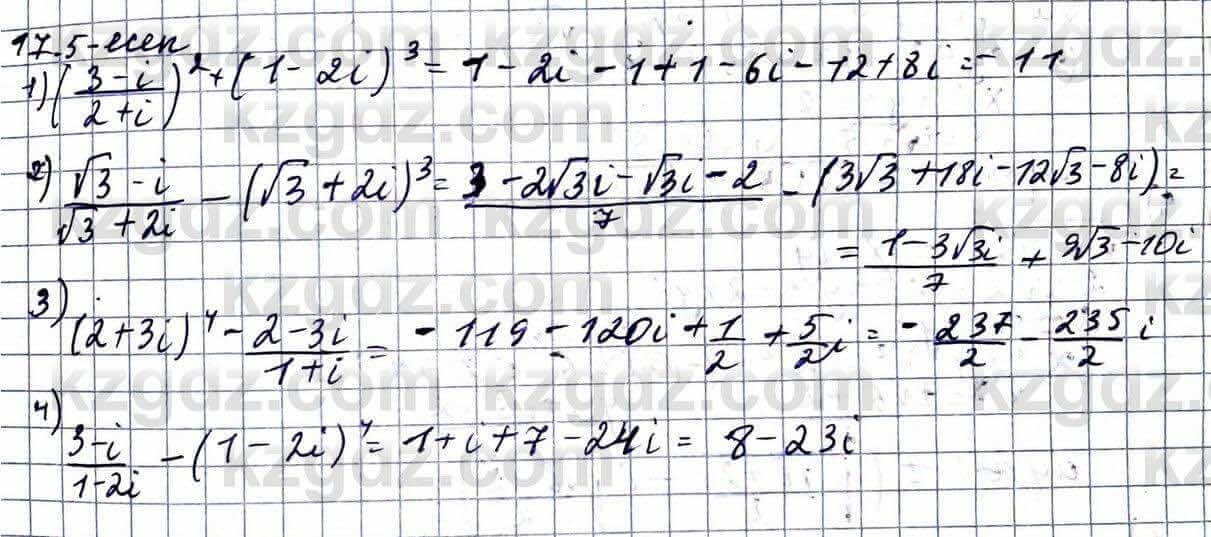 17.5-есеп
1) ((3-i)/(2+i))² + (1-2i)³ = 1-2i-1+1-6i-12+8i = -11
2) (√3-i)/(√3+2i) - (√3+2i)³ = (3-2√3i-√3i-2)/7 - (3√3+18i-12√3-8i) =
= (1-3√3i)/7 + 9√3-10i
3) (2+3i)⁴ - (2-3i)/(1+i) = -119-120i+1/2+5/2i = -237/2-235/2i
4) (3-i)/(1-2i) - (1-2i)⁴ = 1+i+7-24i = 8-23i
kzgdz.com